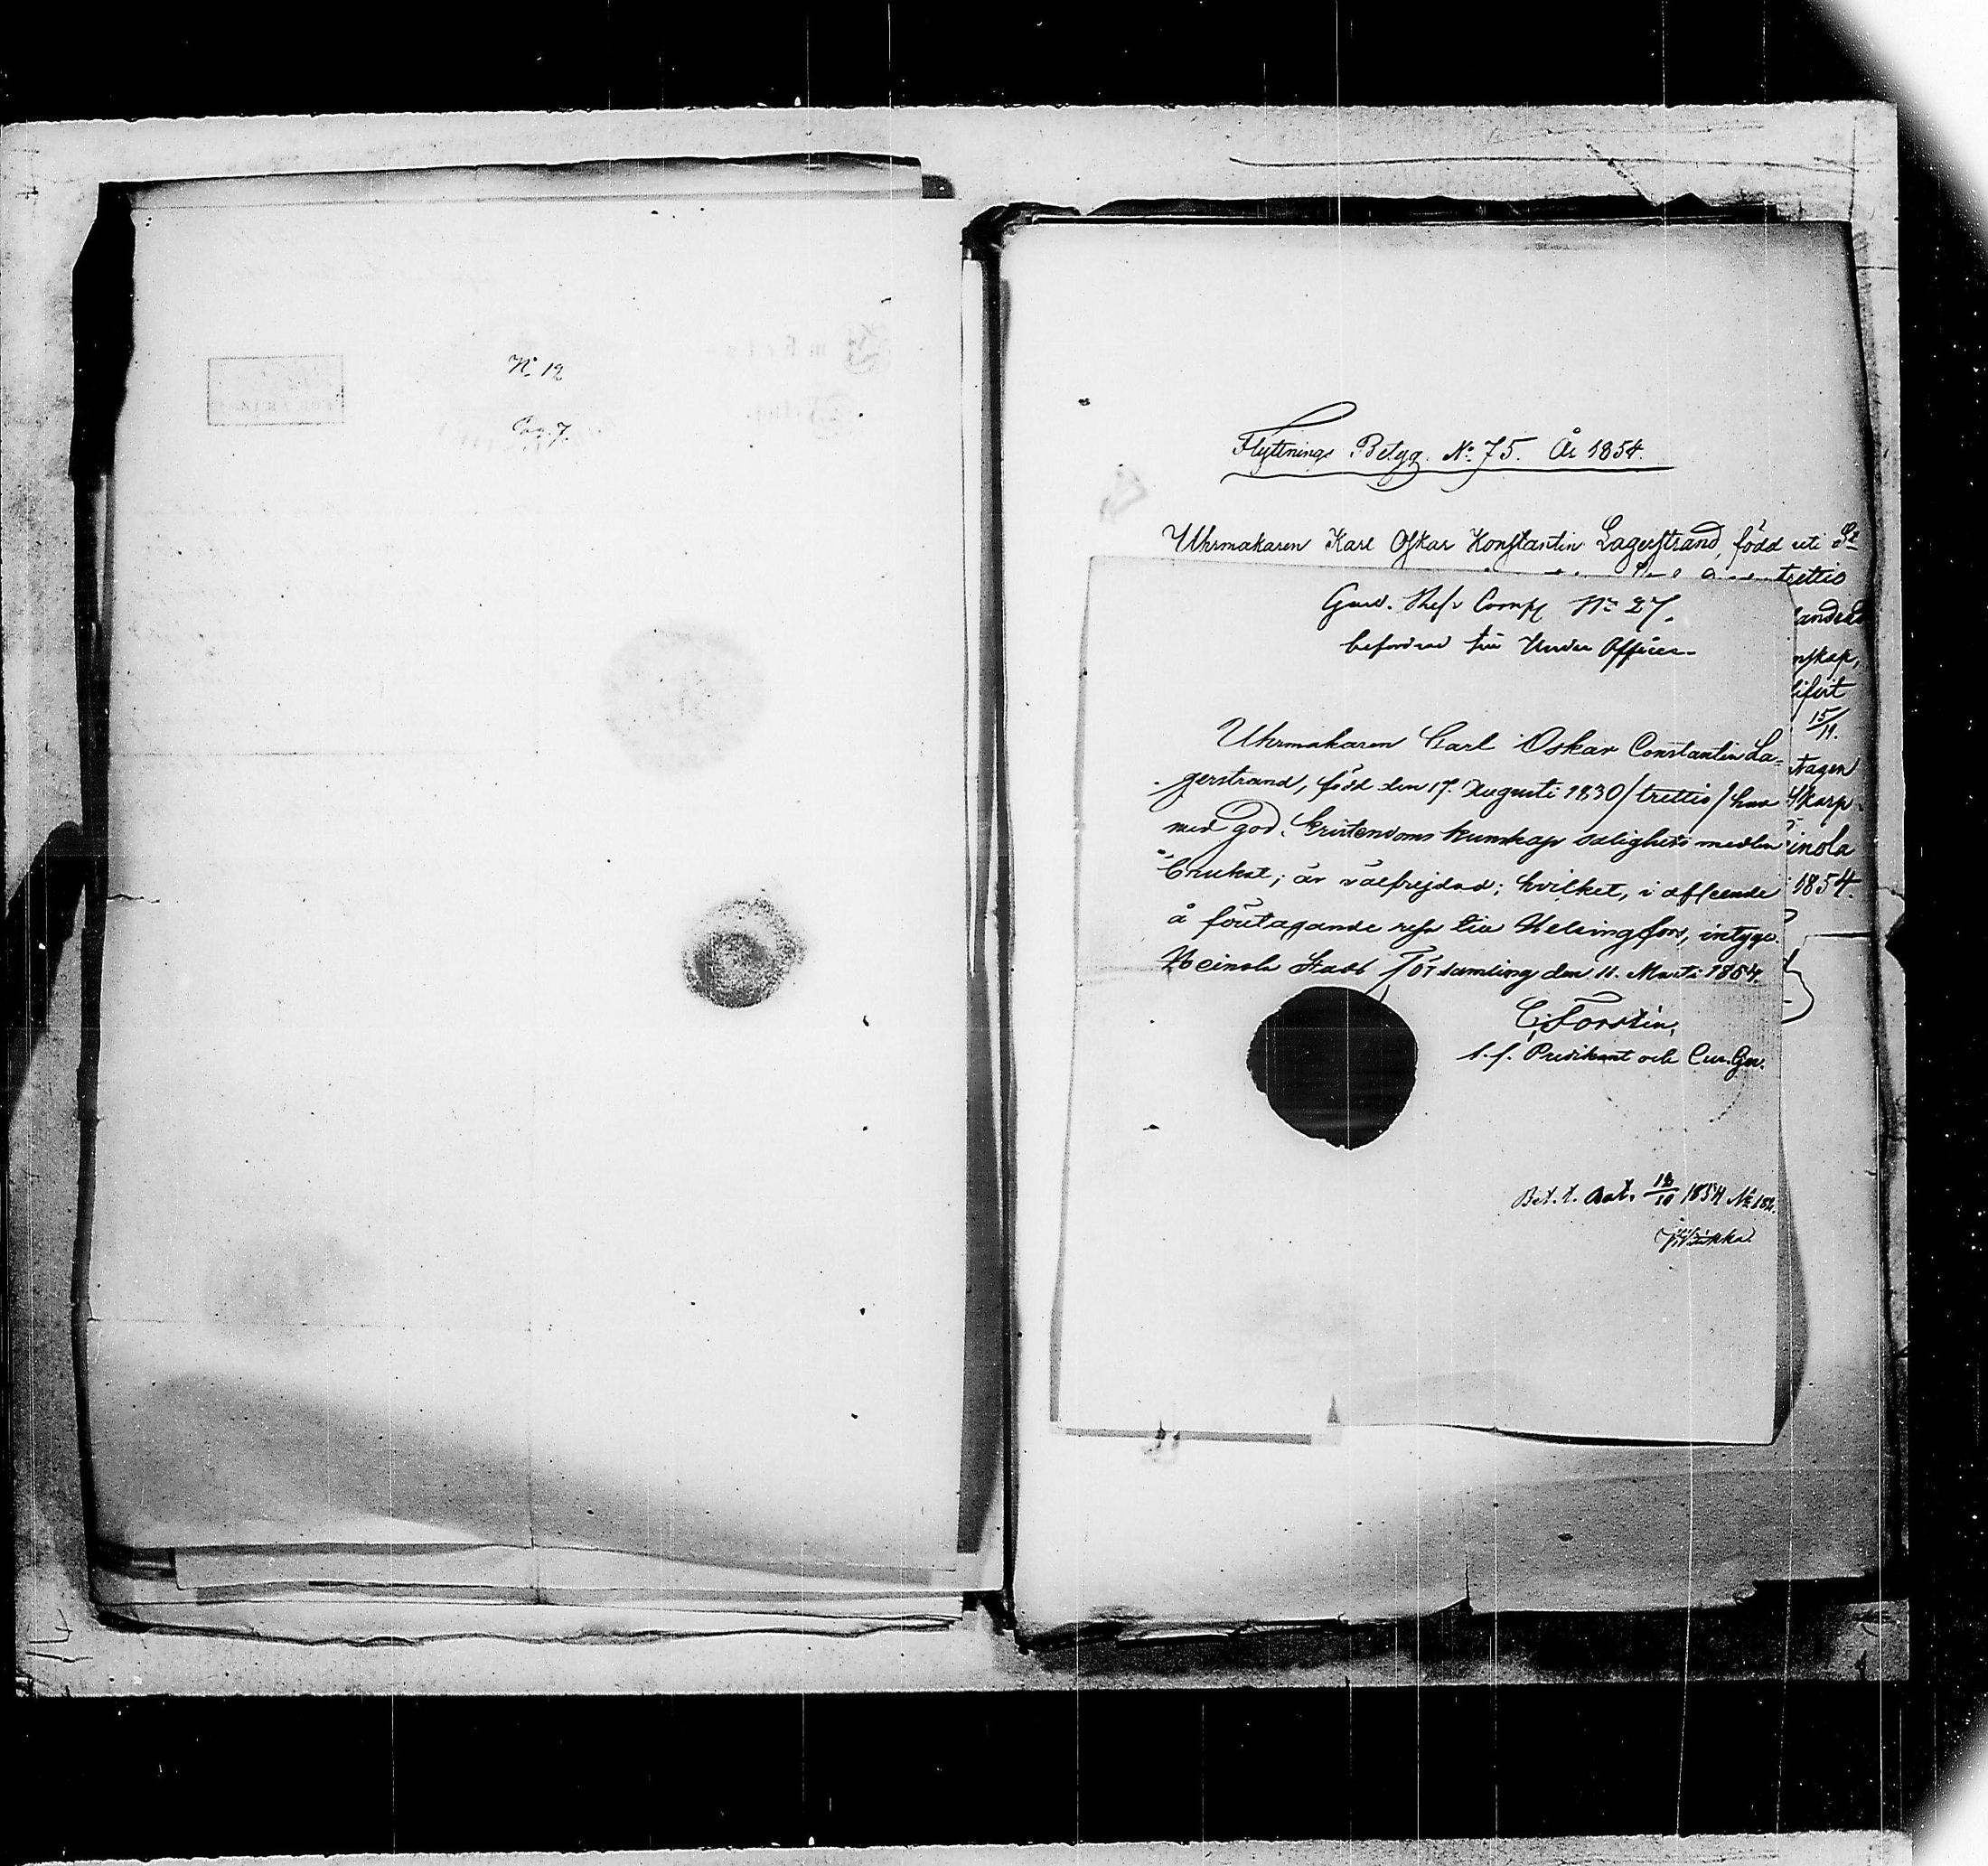 No 12
Pag. 7.
Flyttnings Betyg. No 75. År 1854.
Uhrmakaren Karl Oskar Konstantin Lagerstrand, född uti St
trettio
nskap,
15/11.
tagen
inola
1854.
Gard. Res. Comp No 27.
befordrad till Under Officer.
Uhrmakaren Carl Oskar Constantin La-
gerstrand, född den 17. Augusti 1830/trettio/har
med god Christendoms kunskap salighets medlen
brukat; är välfrejdad; hvilket, i afseende
å företagande resa till Helsingfors, intygar
Heinola Stads Församling den 11. Marti 1854.
C. Forstén,
t. f. Predikant och Cur. Ger.
Bet. t. Aat. 1854 No